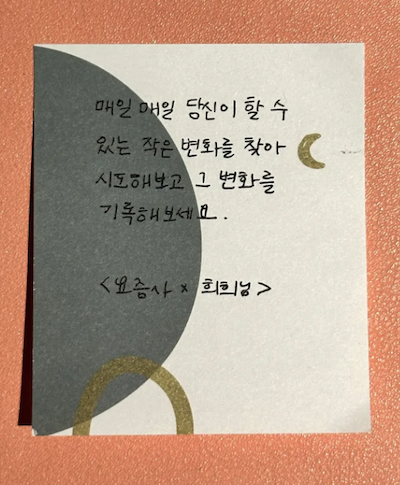 매일 매일 당신이 할 수
있는 작은 변화를 찾아
시도해보고 그 변화를
기록해보세요.
<요즘사 × 희희님>